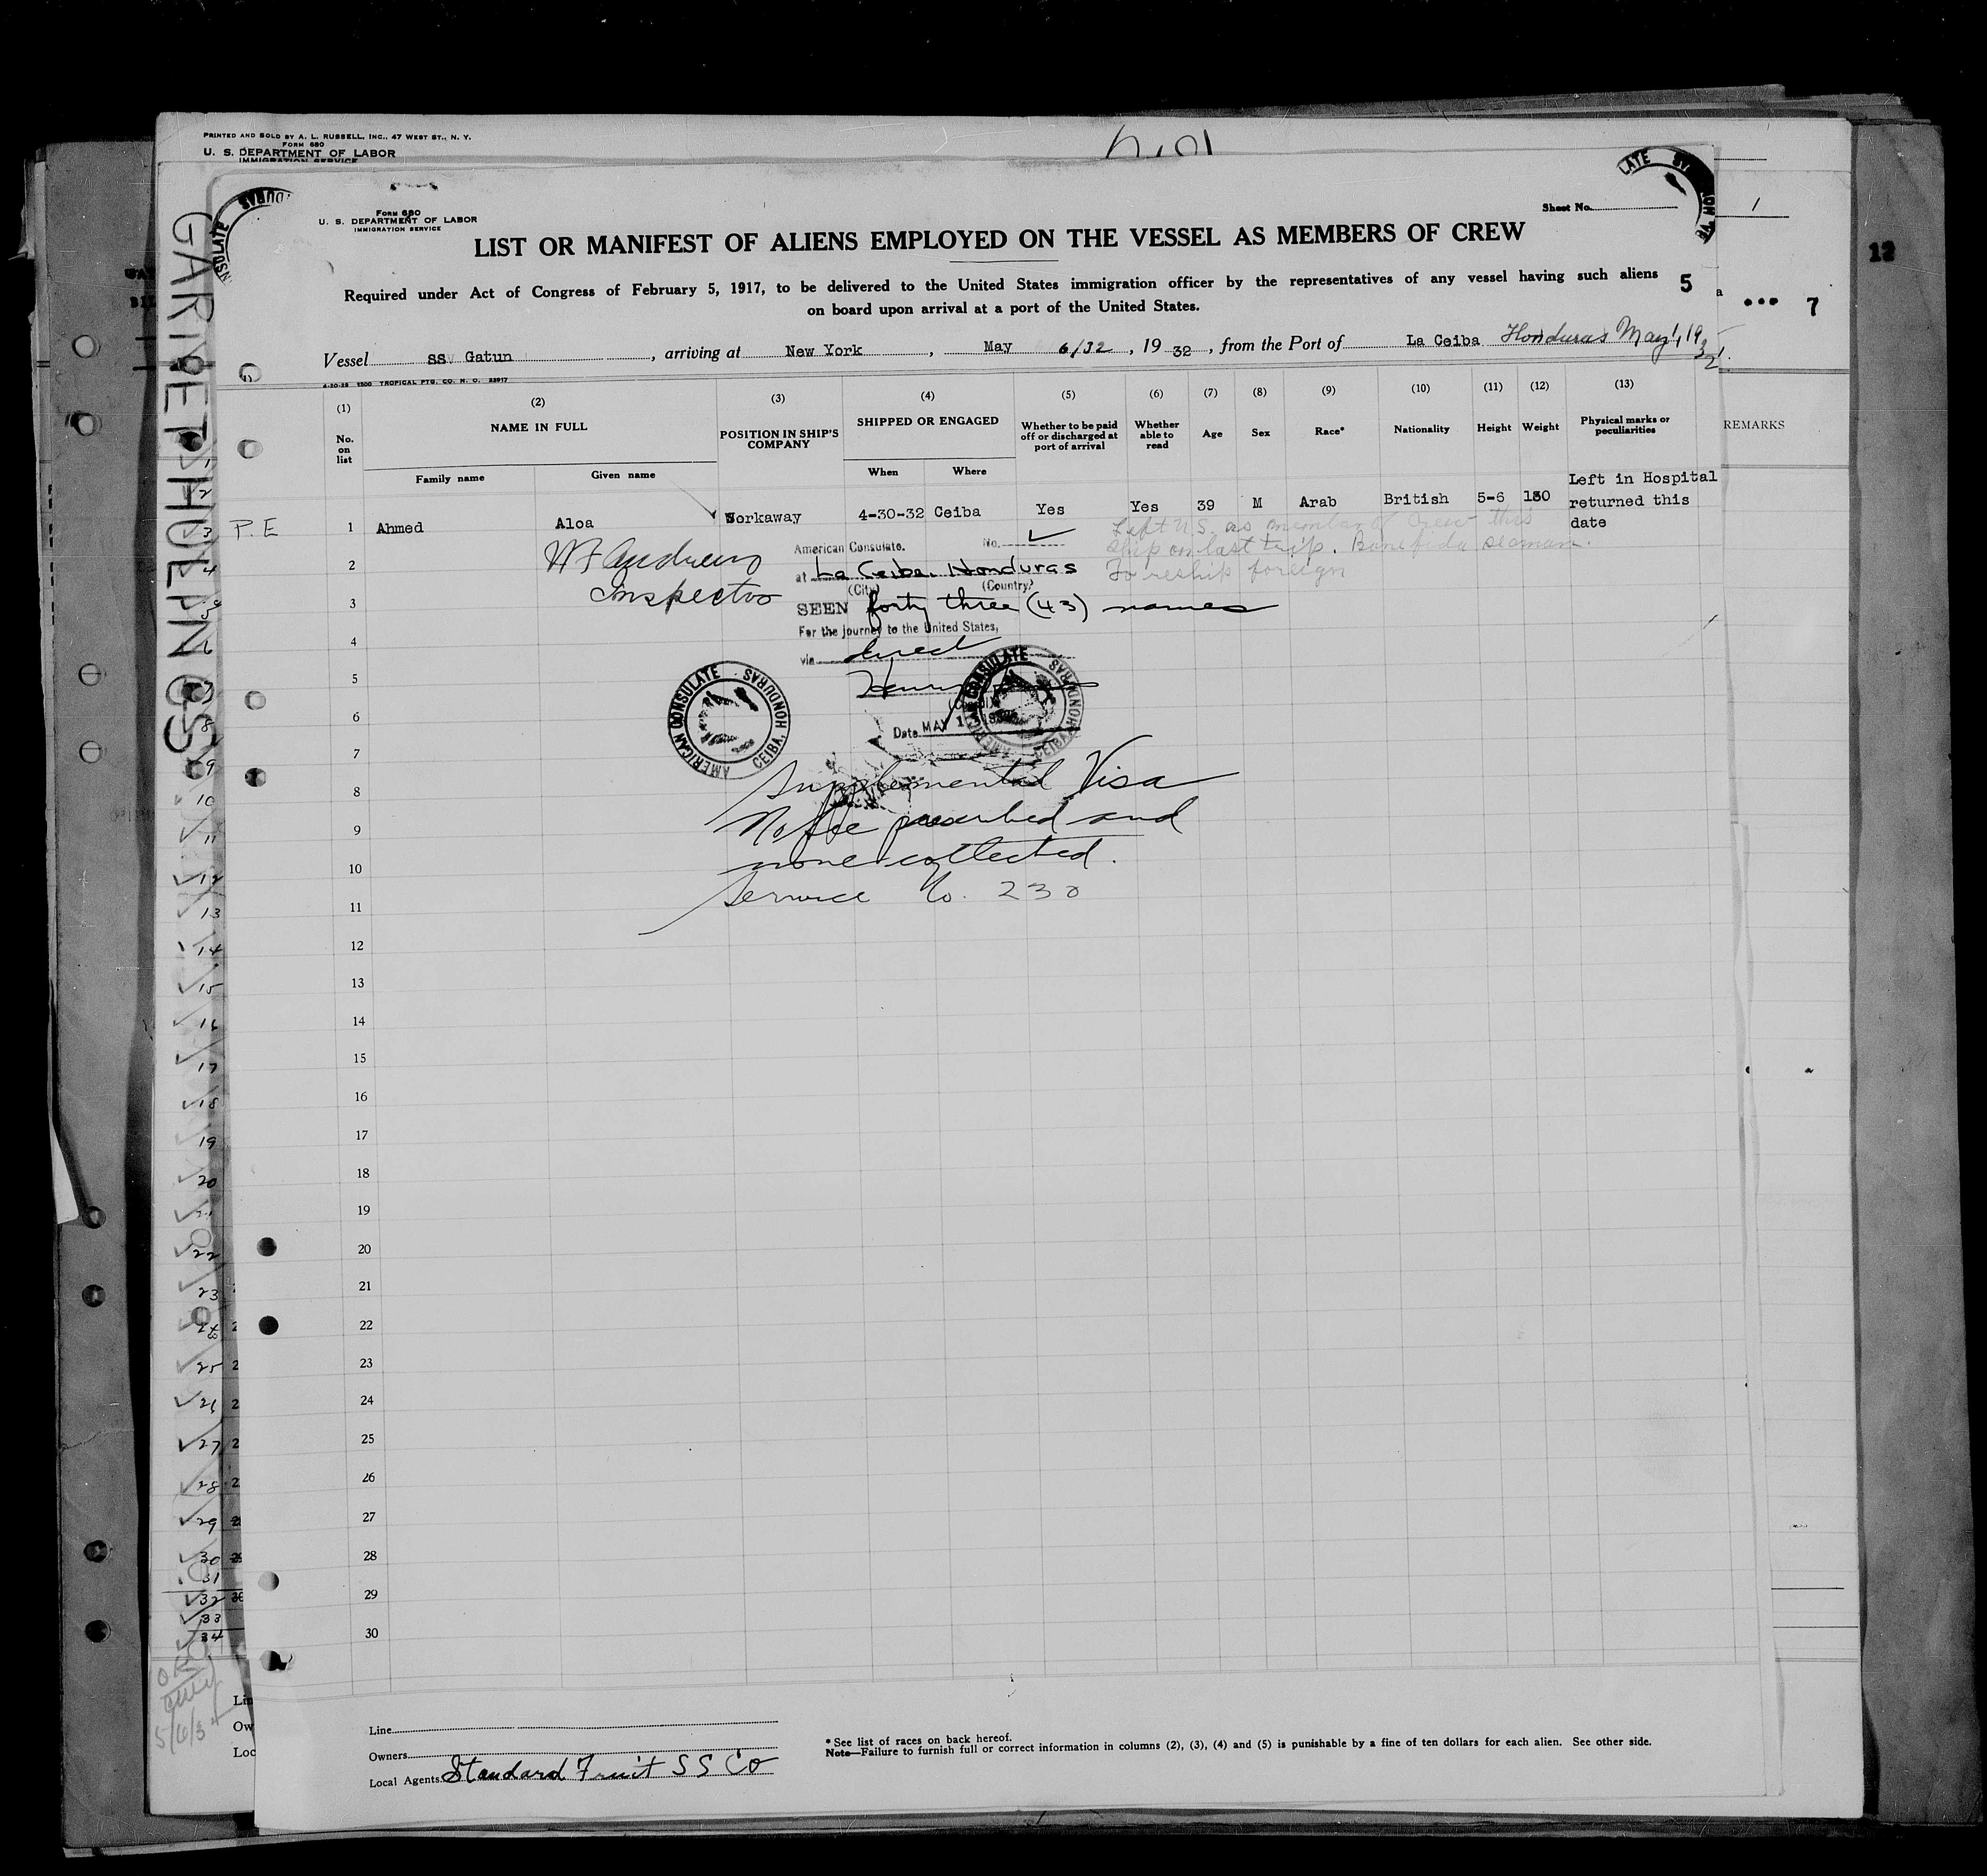 PRINTED AND SOLD BY A. L. RUSSELL, INC., 47 WEST ST., N. Y.
FORM 680
U. S. DEPARTMENT OF LABOR
IMMIGRATION SERVICE
1
12
REMARKS
... 7
GARNET HULEN OS
NSULATE HONDURAS
LATE
FORM 680
U. S. DEPARTMENT OF LABOR
IMMIGRATION SERVICE
Sheet No.
LIST OR MANIFEST OF ALIENS EMPLOYED ON THE VESSEL AS MEMBERS OF CREW
Required under Act of Congress of February 5, 1917, to be delivered to the United States immigration officer by the representatives of any vessel having such aliens
on board upon arrival at a port of the United States.
5
Vessel SS Gatun, arriving at New York, May 6/32, 1932, from the Port of La Ceiba Honduras May 1, 1932.
4-20-28 1200 TROPICAL PTG. CO. N. O. 23917
(1) (2) (3) (4) (5) (6) (7) (8) (9) (10) (11) (12) (13)
No. on list
NAME IN FULL
Family name
Given name
POSITION IN SHIP'S COMPANY
SHIPPED OR ENGAGED
When
Where
Whether to be paid off or discharged at port of arrival
Whether able to read
Age
Sex
Race*
Nationality
Height
Weight
Physical marks or peculiarities
P.E 1 Ahmed Aloa Workaway 4-30-32 Ceiba Yes Yes 39 M Arab British 5-6 130 Left in Hospital returned this date
Left U.S. as member of crew this
ship on last trip. Bonefide seaman.
To reship foreign
W F Andrews
Inspector
American Consulate. No.
at La Ceiba, Honduras
(City) (Country)
SEEN forty three (43) names
For the journey to the United States,
via direct
Henry
Date MAY 1 1932
AMERICAN CONSULATE CEIBA, HONDURAS
AMERICAN CONSULATE CEIBA, HONDURAS
Supplemental Visa
No fee prescribed and
none collected.
Service No. 230
2
3
4
5
6
7
8
9
10
11
12
13
14
15
16
17
18
19
20
21
22
23
24
25
26
27
28
29
30
Line
Owners
Local Agents Standard Fruit S S Co
* See list of races on back hereof.
Note—Failure to furnish full or correct information in columns (2), (3), (4) and (5) is punishable by a fine of ten dollars for each alien. See other side.